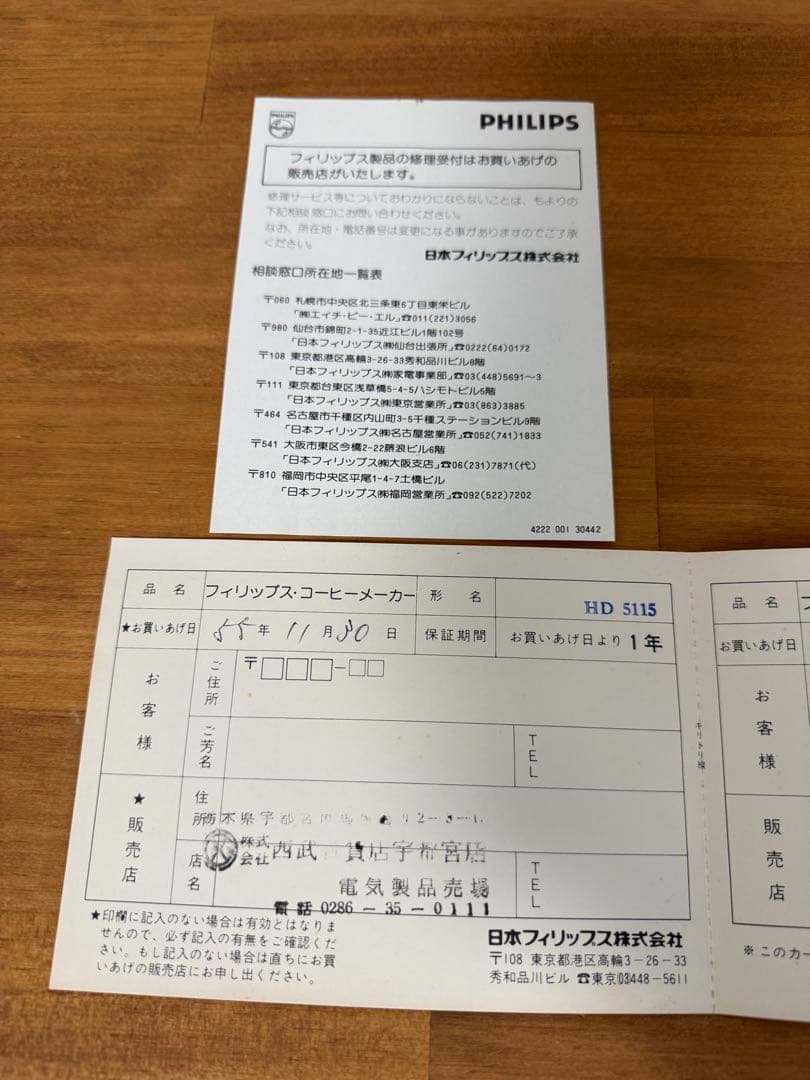 PHILIPS
PHILIPS
フィリップス製品の修理受付はお買いあげの
販売店がいたします。
修理サービス等についておわかりにならないことは、もよりの
下記相談窓口にお問い合わせください。
なお、所在地・電話番号は変更になる事がありますのでご了承
ください。
日本フィリップス株式会社
相談窓口所在地一覧表
〒060 札幌市中央区北三条東6丁目東栄ビル
「㈱エイチ・ピー・エル」☎011(221)3056
〒980 仙台市錦町2-1-35近江ビル1階102号
「日本フィリップス㈱仙台出張所」☎0222(64)0172
〒108 東京都港区高輪3-26-33秀和品川ビル8階
「日本フィリップス㈱家電事業部」☎03(448)5691〜3
〒111 東京都台東区浅草橋5-4-5ハシモトビル5階
「日本フィリップス㈱東京営業所」☎03(863)3885
〒464 名古屋市千種区内山町3-5千種ステーションビル9階
「日本フィリップス㈱名古屋営業所」☎052(741)1833
〒541 大阪市東区今橋2-22藤浪ビル6階
「日本フィリップス㈱大阪支店」☎06(231)7871(代)
〒810 福岡市中央区平尾1-4-7土橋ビル
「日本フィリップス㈱福岡営業所」☎092(522)7202
4222 001 30442
品名 フィリップス・コーヒーメーカー 形名 HD 5115
★お買いあげ日 55年11月30日 保証期間 お買いあげ日より1年
お客様
ご住所 〒
ご芳名
TEL
★販売店
住所 栃木県宇都宮市
店名 株式会社西武百貨店宇都宮店
電気製品売場
TEL
電話 0286-35-0111
★印欄に記入のない場合は有効とはなりま
せんので、必ず記入の有無をご確認くだ
さい。もし記入のない場合は直ちにお買
いあげの販売店にお申し出ください。
日本フィリップス株式会社
〒108 東京都港区高輪3-26-33
秀和品川ビル ☎東京(03)448-5611
キリトリ線
品名 フ
お買いあげ日
お客様
販売店
※このカー